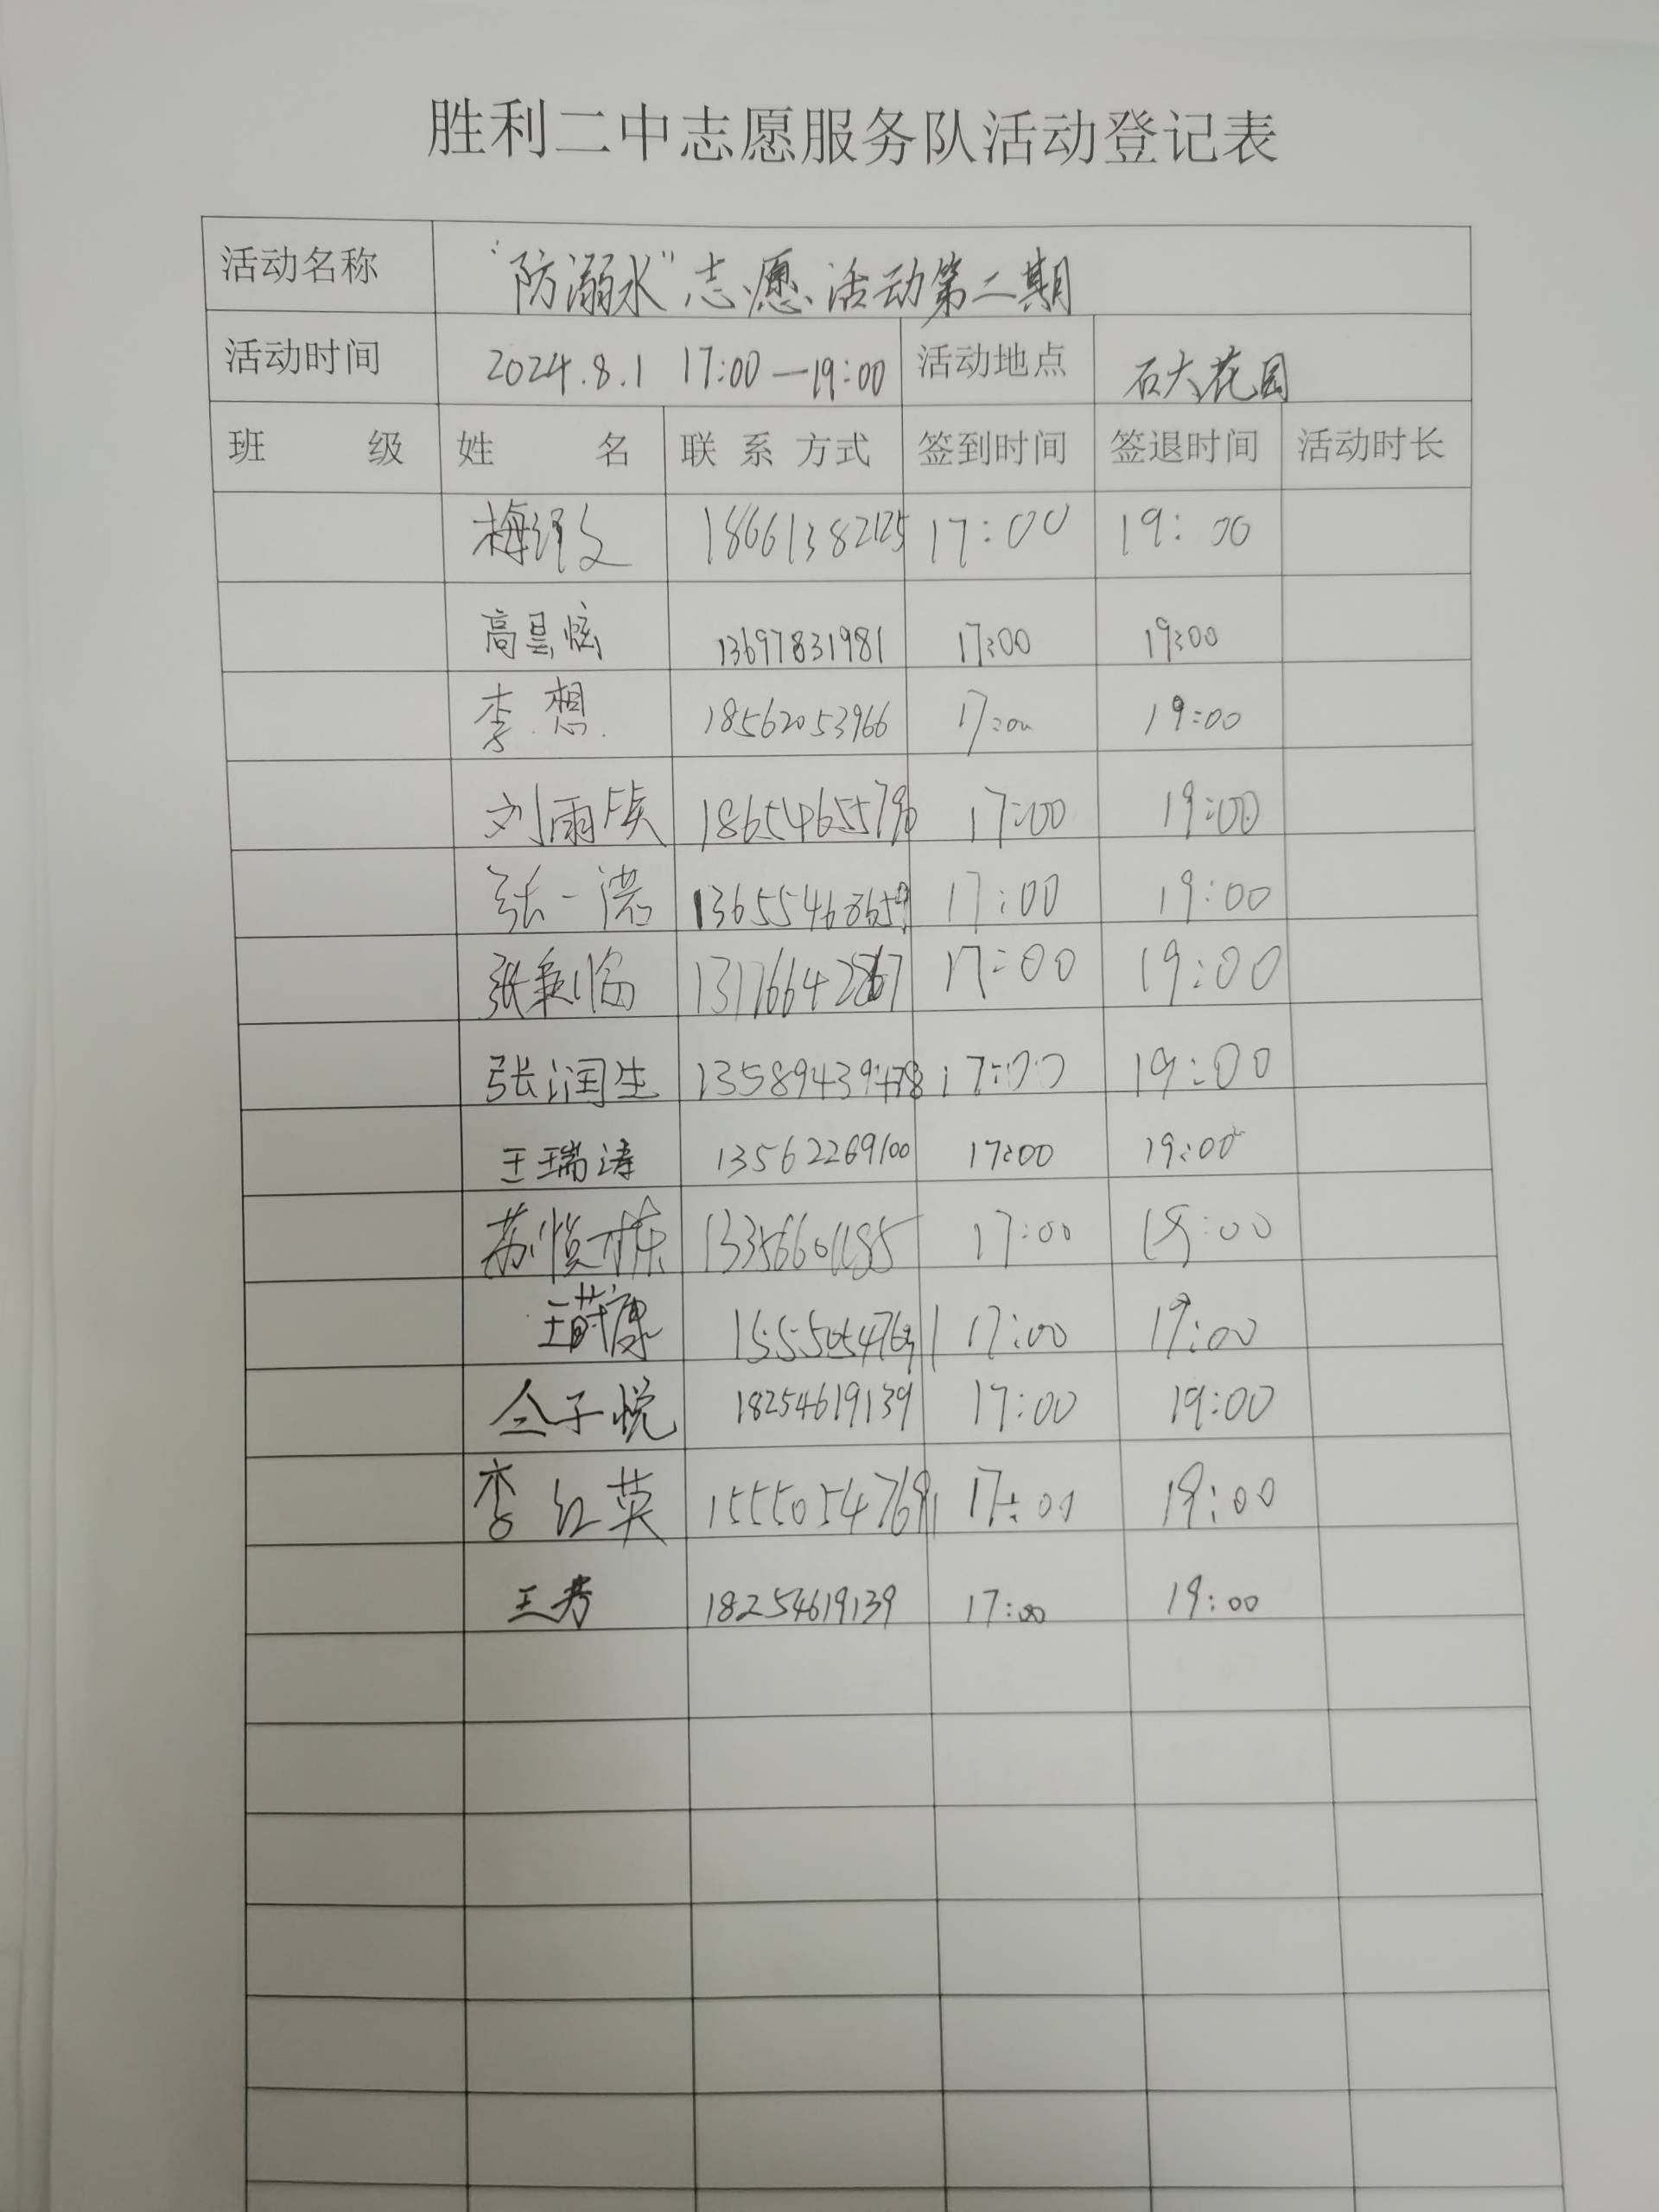 胜利二中志愿服务队活动登记表
活动名称 “防溺水”志愿活动第二期
活动时间 2024.8.1 17:00—19:00 活动地点 石大花园
班 级 姓 名 联系方式 签到时间 签退时间 活动时长
梅绎文 18661382125 17:00 19:00
高昊炫 13697831981 17:00 19:00
李想 18562053966 17:00 19:00
刘雨 17:00 19:00
张一诺 13655468659 17:00 19:00
张秉临 17:00 19:00
张润生 13589439478 17:00 19:00
王瑞涛 13562269100 17:00 19:00
苏慎栋 17:00 19:00
王莳康 17:00 19:00
仝子悦 18254619139 17:00 19:00
李红英 15550547691 17:00 19:00
王芳 18254619139 17:00 19:00